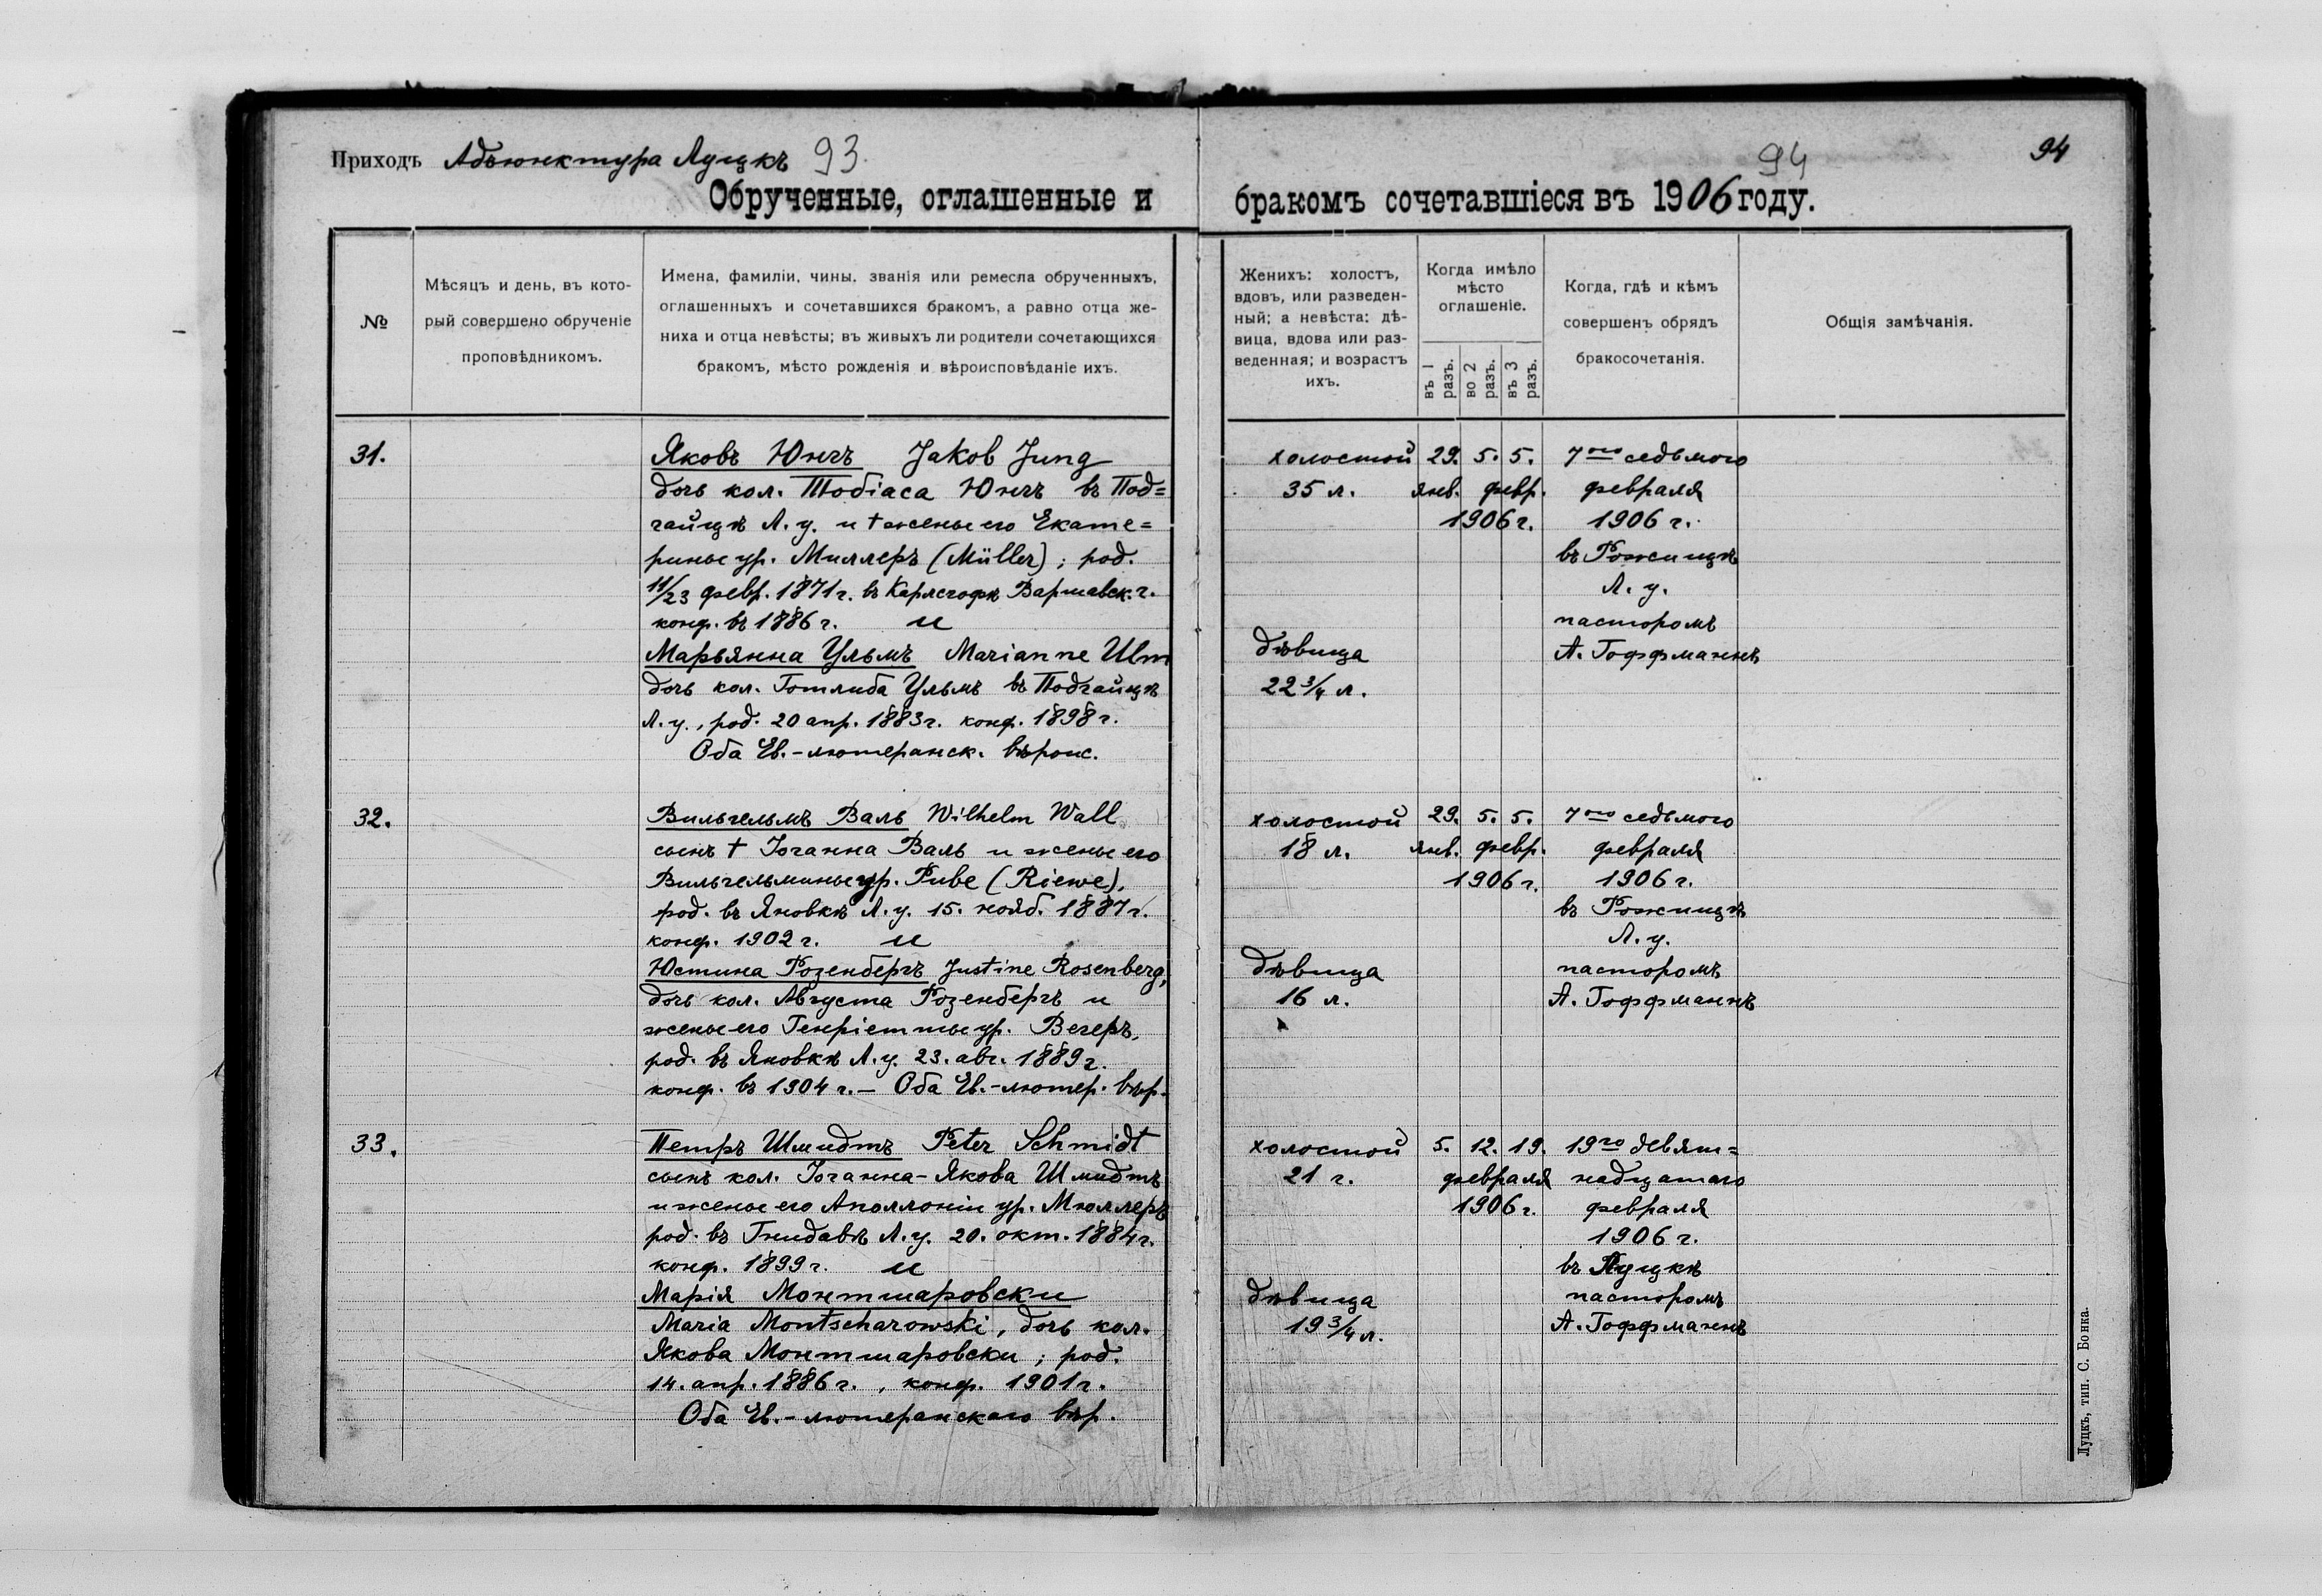 Приходъ Адъюнктура Луцкъ 93.
94
94
Обрученные, оглашенные и бракомъ сочетавшіеся въ 1906 году.
№
Мѣсяцъ и день, въ кото-
рый совершено обрученіе
проповѣдникомъ.
Имена, фамиліи, чины, званія или ремесла обрученныхъ,
оглашенныхъ и сочетавшихся бракомъ, а равно отца же-
ниха и отца невѣсты; въ живыхъ ли родители сочетающихся
бракомъ, мѣсто рожденія и вѣроисповѣданіе ихъ.
Женихъ: холостъ,
вдовъ, или разведен-
ный; а невѣста: дѣ-
вица, вдова или раз-
веденная; и возрастъ
ихъ.
Когда имѣло
мѣсто
оглашеніе.
въ 1 разъ.
во 2 разъ.
въ 3 разъ.
Когда, гдѣ и кѣмъ
совершенъ обрядъ
бракосочетанія.
Общія замѣчанія.
31.
Яковъ Юнгъ Jakob Jung
дочь кол. Тобіаса Юнгъ въ Под=
гайцѣ Л. у. и † жены его Екате=
рины ур. Миллеръ (Müller); род.
11/23 февр. 1871 г. въ Карлсгофѣ Варшавск. г.
конф. въ 1886 г. и
Марьянна Ульмъ Marianne Ulm
дочь кол. Готлиба Ульмъ въ Подгайцѣ
Л. у., род. 20 апр. 1883 г. конф. 1898 г.
Оба Ев.-лютеранск. вѣроис.
холостой
35 л.
дѣвица
22 3/4 л.
29. 5. 5.
янв. февр.
1906 г.
7ого седьмого
февраля
1906 г.
въ Рожищѣ
Л. у.
пасторомъ
А. Гоффманнъ
32.
Вильгельмъ Валь Wilhelm Wall
сынъ † Іоганна Валь и жены его
Вильгельмины ур. Риве (Riewe),
род. въ Яновкѣ Л. у. 15. нояб. 1887 г.
конф. 1902 г. и
Юстина Розенбергъ Justine Rosenberg,
дочь кол. Августа Розенбергъ и
жены его Генріетты ур. Вегеръ,
род. въ Яновкѣ Л. у. 23. авг. 1889 г.
конф. въ 1904 г. — Оба Ев.-лютер. вѣр.
холостой
18 л.
дѣвица
16 л.
29. 5. 5.
янв. февр.
1906 г.
7ого седьмого
февраля
1906 г.
въ Рожищѣ
Л. у.
пасторомъ
А. Гоффманнъ
33.
Петръ Шмидтъ Peter Schmidt
сынъ кол. Іоганна-Якова Шмидтъ
и жены его Аполлоніи ур. Мюллеръ
род. въ Гнидавѣ Л. у. 20. окт. 1884 г.
конф. 1899 г. и
Марія Монтшаровски
Maria Montscharowski, дочь кол.
Якова Монтшаровски; род.
14. апр. 1886 г., конф. 1901 г.
Оба Ев.-лютеранскаго вѣр.
холостой
21 г.
дѣвица
19 3/4 л.
5. 12. 19.
февраля
1906 г.
19го девят=
надцатаго
февраля
1906 г.
въ Луцкѣ
пасторомъ
А. Гоффманнъ
Луцкъ, тип. С. Бонка.